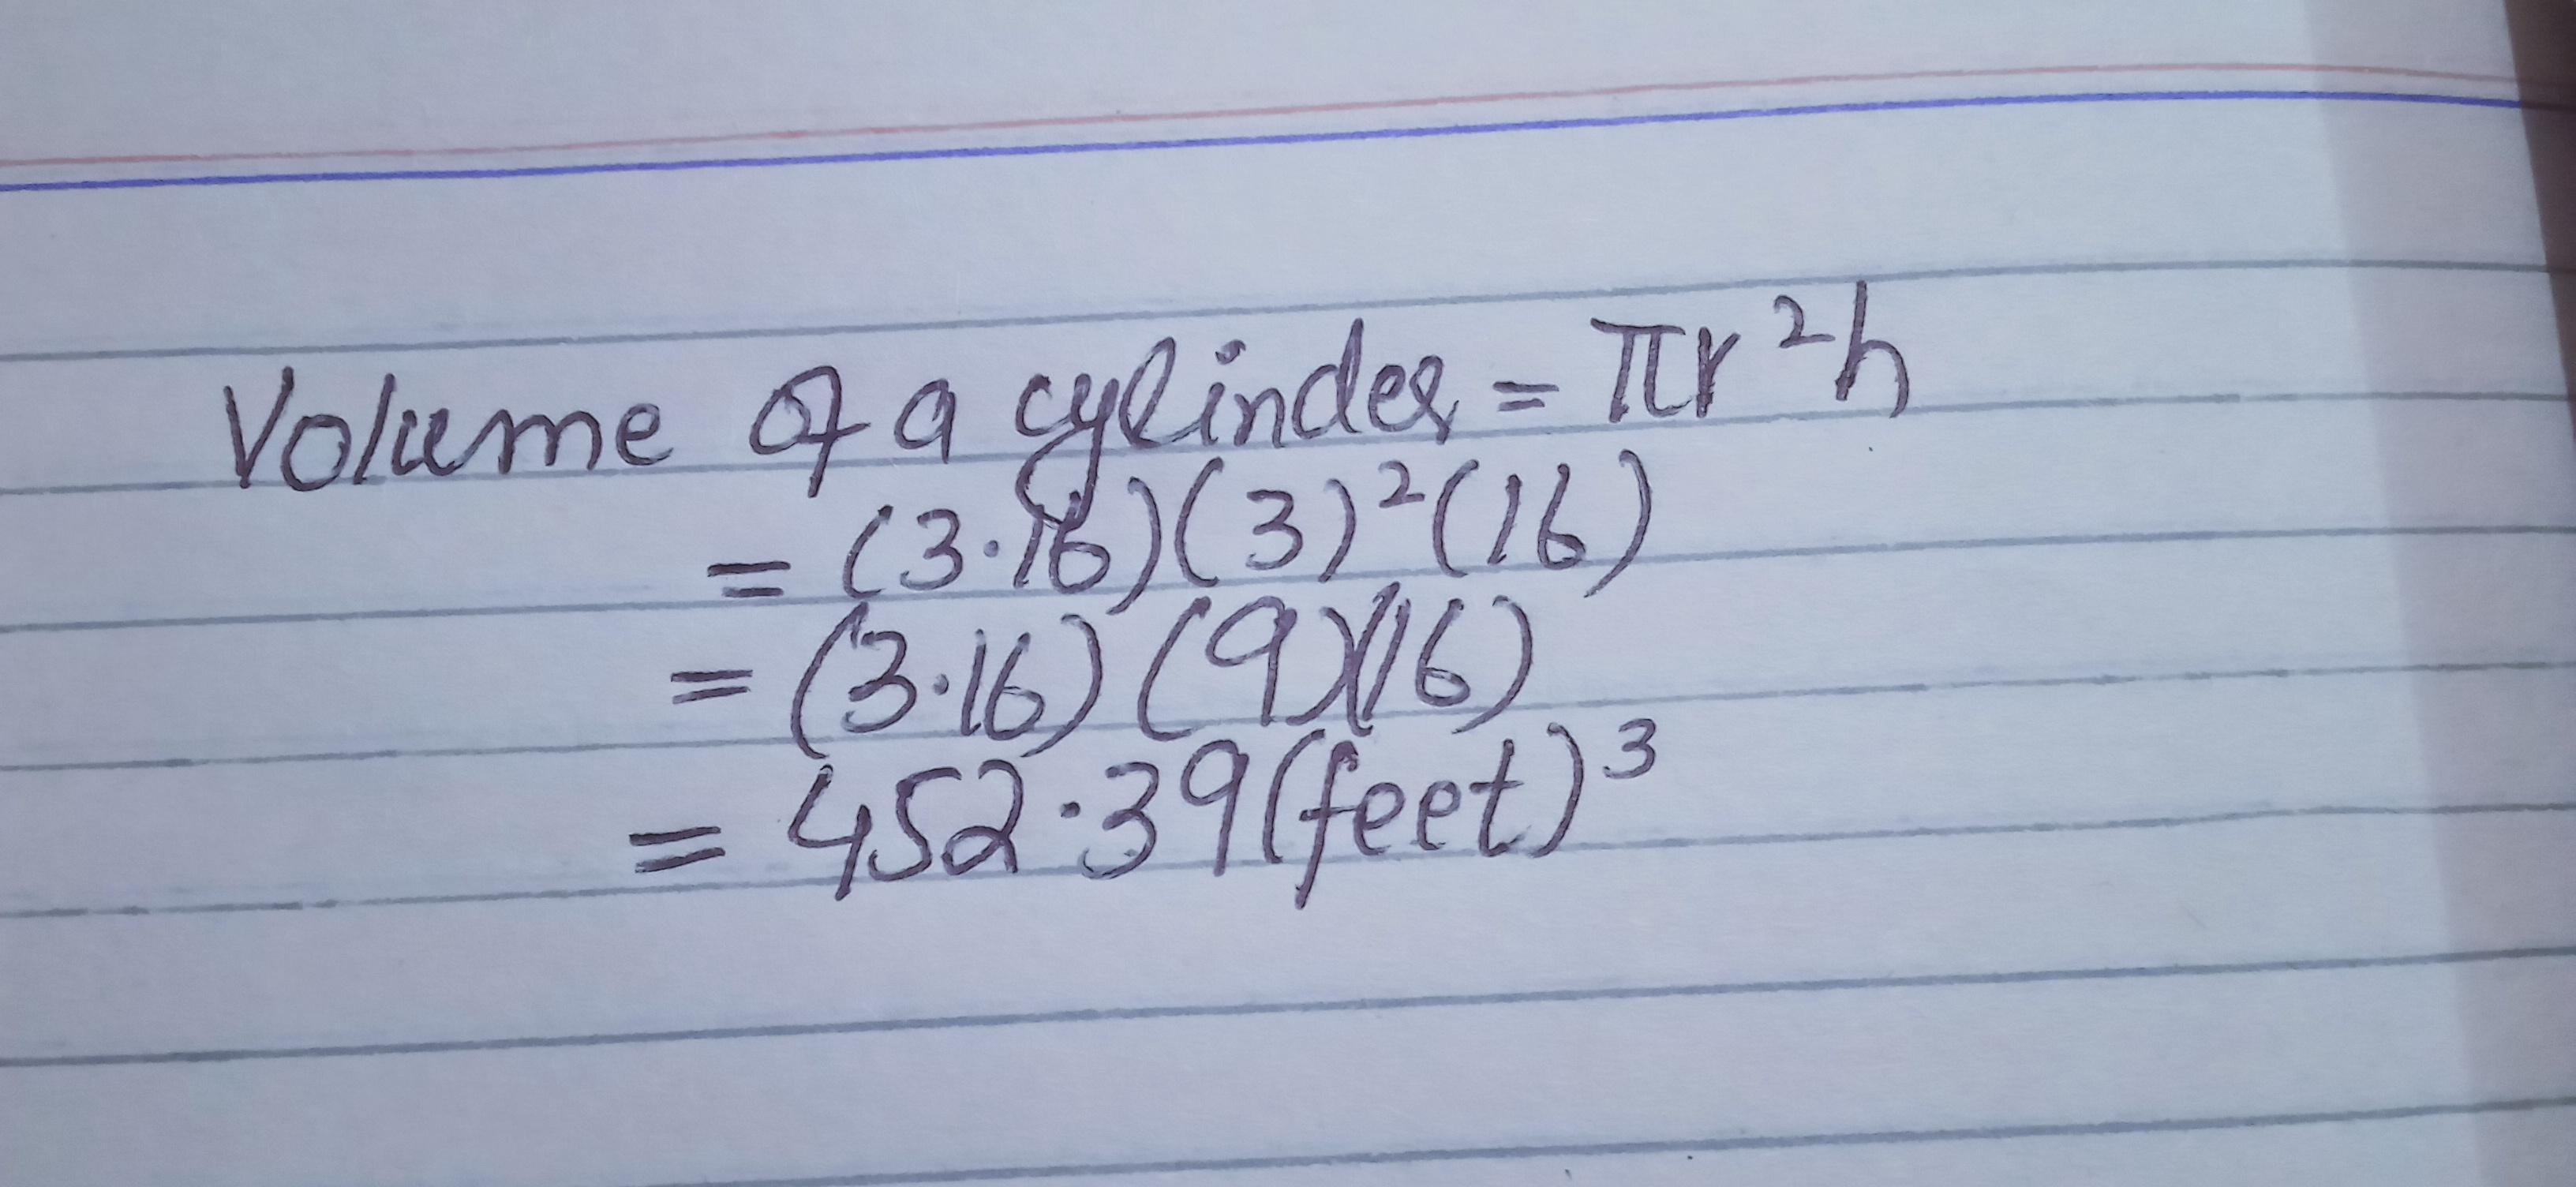 Volume of a cylinder = πr²h
= (3.16)(3)²(16)
= (3.16)(9)(16)
= 452.39(feet)³